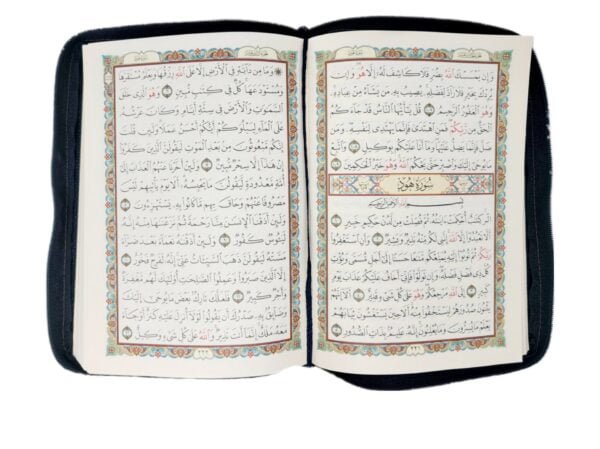 وَإِن يَمْسَسْكَ ٱللَّهُ بِضُرٍّ فَلَا كَاشِفَ لَهُۥٓ إِلَّا هُوَ ۖ وَإِن
يُرِدْكَ بِخَيْرٍ فَلَا رَآدَّ لِفَضْلِهِۦ ۚ يُصِيبُ بِهِۦ مَن يَشَآءُ مِنْ عِبَادِهِۦ ۚ
وَهُوَ ٱلْغَفُورُ ٱلرَّحِيمُ ١٠٧ قُلْ يَٰٓأَيُّهَا ٱلنَّاسُ قَدْ جَآءَكُمُ
ٱلْحَقُّ مِن رَّبِّكُمْ ۖ فَمَنِ ٱهْتَدَىٰ فَإِنَّمَا يَهْتَدِى لِنَفْسِهِۦ ۖ
وَمَن ضَلَّ فَإِنَّمَا يَضِلُّ عَلَيْهَا ۖ وَمَآ أَنَا۠ عَلَيْكُم بِوَكِيلٍ ١٠٨ وَٱتَّبِعْ
مَا يُوحَىٰٓ إِلَيْكَ وَٱصْبِرْ حَتَّىٰ يَحْكُمَ ٱللَّهُ ۚ وَهُوَ خَيْرُ ٱلْحَٰكِمِينَ ١٠٩
سُورَةُ هُودٍ
بِسْمِ ٱللَّهِ ٱلرَّحْمَٰنِ ٱلرَّحِيمِ
الٓر ۚ كِتَٰبٌ أُحْكِمَتْ ءَايَٰتُهُۥ ثُمَّ فُصِّلَتْ مِن لَّدُنْ حَكِيمٍ خَبِيرٍ ١
أَلَّا تَعْبُدُوٓا۟ إِلَّا ٱللَّهَ ۚ إِنَّنِى لَكُم مِّنْهُ نَذِيرٌ وَبَشِيرٌ ٢ وَأَنِ ٱسْتَغْفِرُوا۟
رَبَّكُمْ ثُمَّ تُوبُوٓا۟ إِلَيْهِ يُمَتِّعْكُم مَّتَٰعًا حَسَنًا إِلَىٰٓ أَجَلٍ مُّسَمًّى وَيُؤْتِ
كُلَّ ذِى فَضْلٍ فَضْلَهُۥ ۖ وَإِن تَوَلَّوْا۟ فَإِنِّىٓ أَخَافُ عَلَيْكُمْ عَذَابَ يَوْمٍ
كَبِيرٍ ٣ إِلَى ٱللَّهِ مَرْجِعُكُمْ ۖ وَهُوَ عَلَىٰ كُلِّ شَىْءٍ قَدِيرٌ ٤ أَلَآ إِنَّهُمْ
يَثْنُونَ صُدُورَهُمْ لِيَسْتَخْفُوا۟ مِنْهُ ۚ أَلَا حِينَ يَسْتَغْشُونَ ثِيَابَهُمْ
يَعْلَمُ مَا يُسِرُّونَ وَمَا يُعْلِنُونَ ۚ إِنَّهُۥ عَلِيمٌۢ بِذَاتِ ٱلصُّدُورِ ٥
٢٢١
۞ وَمَا مِن دَآبَّةٍ فِى ٱلْأَرْضِ إِلَّا عَلَى ٱللَّهِ رِزْقُهَا وَيَعْلَمُ مُسْتَقَرَّهَا
وَمُسْتَوْدَعَهَا ۚ كُلٌّ فِى كِتَٰبٍ مُّبِينٍ ٦ وَهُوَ ٱلَّذِى خَلَقَ
ٱلسَّمَٰوَٰتِ وَٱلْأَرْضَ فِى سِتَّةِ أَيَّامٍ وَكَانَ عَرْشُهُۥ
عَلَى ٱلْمَآءِ لِيَبْلُوَكُمْ أَيُّكُمْ أَحْسَنُ عَمَلًا ۗ وَلَئِن قُلْتَ
إِنَّكُم مَّبْعُوثُونَ مِنۢ بَعْدِ ٱلْمَوْتِ لَيَقُولَنَّ ٱلَّذِينَ كَفَرُوٓا۟
إِنْ هَٰذَآ إِلَّا سِحْرٌ مُّبِينٌ ٧ وَلَئِنْ أَخَّرْنَا عَنْهُمُ ٱلْعَذَابَ إِلَىٰٓ
أُمَّةٍ مَّعْدُودَةٍ لَّيَقُولُنَّ مَا يَحْبِسُهُۥٓ ۗ أَلَا يَوْمَ يَأْتِيهِمْ لَيْسَ
مَصْرُوفًا عَنْهُمْ وَحَاقَ بِهِم مَّا كَانُوا۟ بِهِۦ يَسْتَهْزِءُونَ ٨
وَلَئِنْ أَذَقْنَا ٱلْإِنسَٰنَ مِنَّا رَحْمَةً ثُمَّ نَزَعْنَٰهَا مِنْهُ إِنَّهُۥ
لَيَـُٔوسٌ كَفُورٌ ٩ وَلَئِنْ أَذَقْنَٰهُ نَعْمَآءَ بَعْدَ ضَرَّآءَ
مَسَّتْهُ لَيَقُولَنَّ ذَهَبَ ٱلسَّيِّـَٔاتُ عَنِّىٓ ۚ إِنَّهُۥ لَفَرِحٌ فَخُورٌ ١٠
إِلَّا ٱلَّذِينَ صَبَرُوا۟ وَعَمِلُوا۟ ٱلصَّٰلِحَٰتِ أُو۟لَٰٓئِكَ لَهُم مَّغْفِرَةٌ
وَأَجْرٌ كَبِيرٌ ١١ فَلَعَلَّكَ تَارِكٌۢ بَعْضَ مَا يُوحَىٰٓ إِلَيْكَ
وَضَآئِقٌۢ بِهِۦ صَدْرُكَ أَن يَقُولُوا۟ لَوْلَآ أُنزِلَ عَلَيْهِ كَنزٌ أَوْ جَآءَ
مَعَهُۥ مَلَكٌ ۚ إِنَّمَآ أَنتَ نَذِيرٌ ۚ وَٱللَّهُ عَلَىٰ كُلِّ شَىْءٍ وَكِيلٌ ١٢
٢٢٢